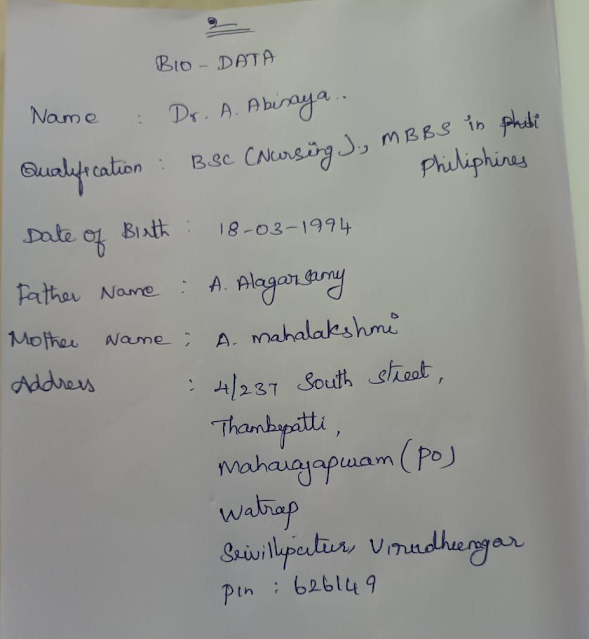 2
BIO - DATA
Name : Dr. A. Abinaya..
Qualification : BSC (Nursing)., MBBS in
Philiphines
Date of Birth : 18-03-1994
Father Name : A. Alagarsamy
Mother Name : A. mahalakshmi
Address : 4/237 South street,
Thambipatti,
Maharajapuram (PO)
Watrap
Srivilliputur, Virudhungar
Pin : 626149